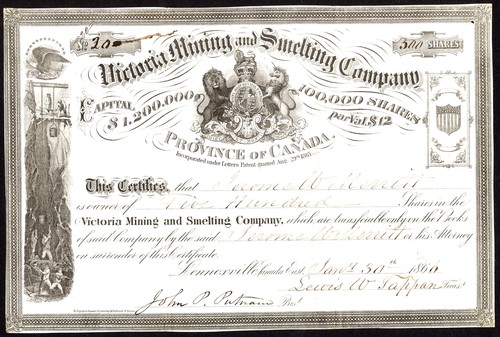 No. 20
500 SHARES
Victoria Mining and Smelting Company
CAPITAL
$1,200,000
100,000 SHARES
par Val. $12
PROVINCE OF CANADA.
Incorporated under Letters Patent issued Aug. 29th 1863.
This Certifies, that Jerome W. Merritt
is owner of Five Hundred Shares in the
Victoria Mining and Smelting Company, which are transferable only on the Books
of said Company by the said Jerome W. Merritt or his Attorney
on surrender of this Certificate.
Lennoxville, Canada East, Jany 30th 1866
Lewis W Tappan Treas.
John P. Putnam Pres.